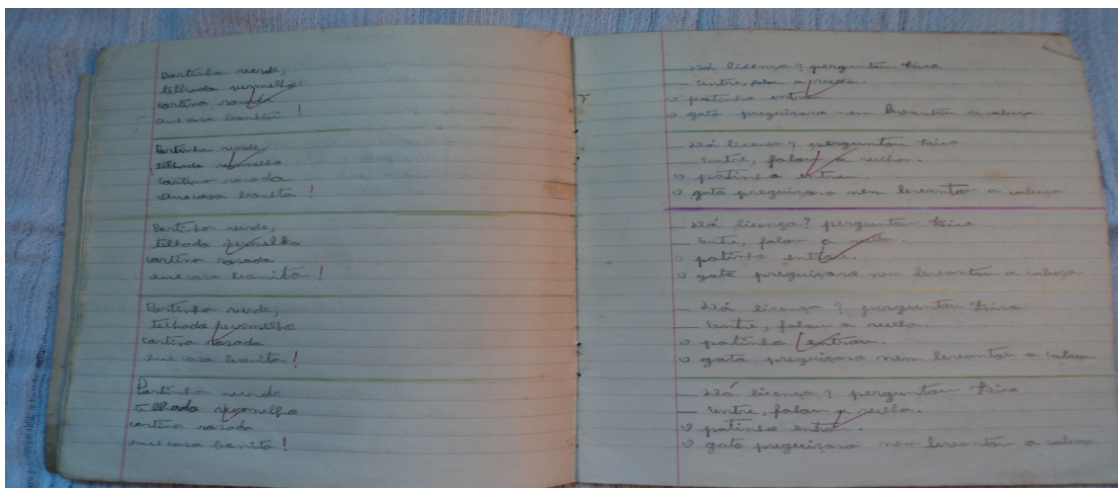 Portinha verde,
telhado vermelho
cortina rosada
que casa bonita!
Portinha verde,
telhado vermelho
cortina rosada
que casa bonita!
Portinha verde,
telhado vermelho
cortina rosada
que casa bonita!
Portinha verde,
telhado vermelho
cortina rosada
que casa bonita!
Portinha verde
telhado vermelho
cortina rosada
que casa bonita!
— Dá licença? perguntou
— Entre, falou a velha.
O patinho entrou
O gato preguiçoso nem levantou a cabeça
— Dá licença? perguntou
— Entre, falou a velha.
O patinho entrou.
O gato preguiçoso nem levantou a cabeça
— Dá licença? perguntou
— Entre, falou a velha.
O patinho entrou.
O gato preguiçoso nem levantou a cabeça
— Dá licença? perguntou
— Entre, falou a velha.
O patinho entrou.
O gato preguiçoso nem levantou a cabeça
— Dá licença? perguntou
— Entre, falou a velha.
O patinho entrou.
O gato preguiçoso nem levantou a cabeça